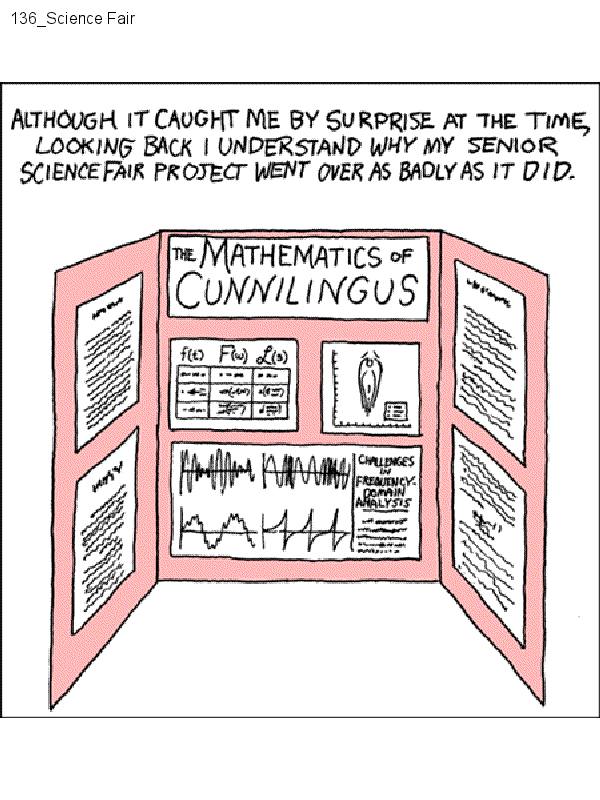 136_Science Fair
ALTHOUGH IT CAUGHT ME BY SURPRISE AT THE TIME,
LOOKING BACK I UNDERSTAND WHY MY SENIOR
SCIENCE FAIR PROJECT WENT OVER AS BADLY AS IT DID.
THE MATHEMATICS OF
CUNNILINGUS
f(t) F(ω) ℒ(s)
CHALLENGES
IN
FREQUENCY-
DOMAIN
ANALYSIS